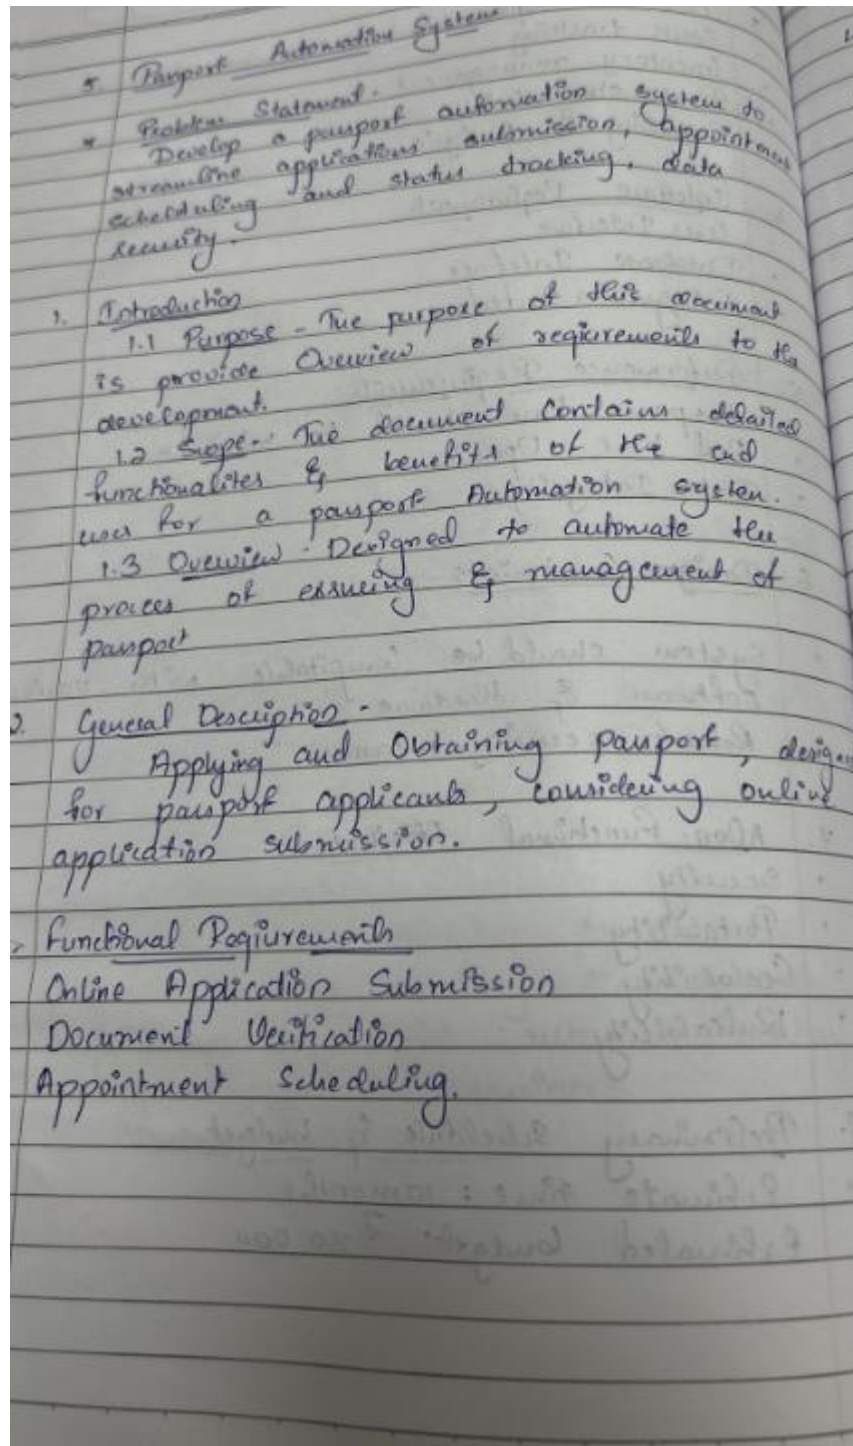 5. Passport Automation System
* Problem Statement -
Develop a passport automation system to
streamline applications submission, appointment
scheduling and status tracking, data
security.
1. Introduction
1.1 Purpose - The purpose of this document
is provide Overview of requirements to the
development.
1.2 Scope - The document contains detailed
functionalites & benefits of the end
user for a passport Automation system.
1.3 Overview - Designed to automate the
process of essueing & management of
passport
2. General Description -
Applying and Obtaining passport, design
for passport applicants, considering online
application submission.
Functional Requirements
Online Application Submission
Document Verification
Appointment Scheduling.